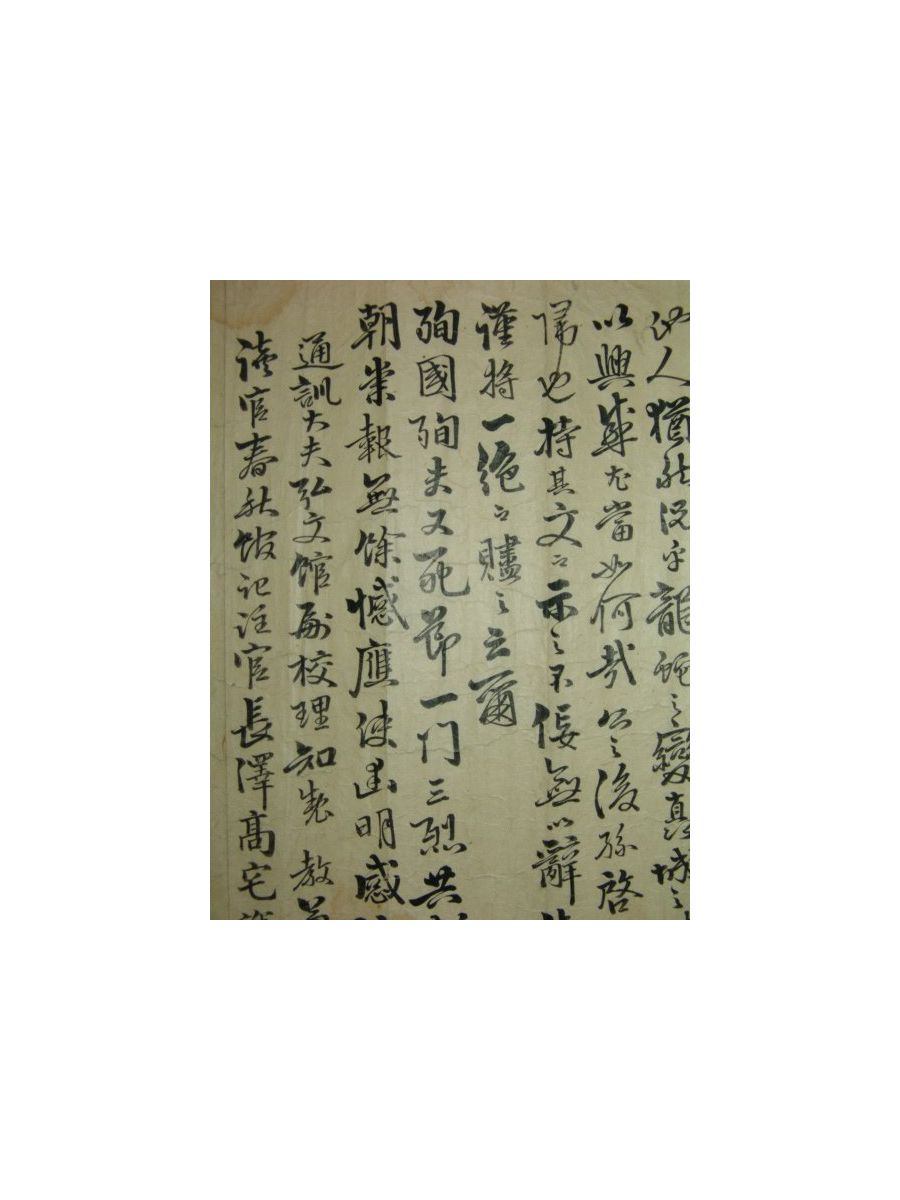 人猶然況乎龍蛇之變眞城之
以興感尤當如何哉公之後孫啓
歸也持其文以示之不佞無以辭
謹將一絶以贐之云爾
殉國殉夫又死節一門三烈共
朝家報無餘憾應使幽明感
通訓大夫弘文館副校理知製敎兼
讀官春秋館記注官長澤高宅